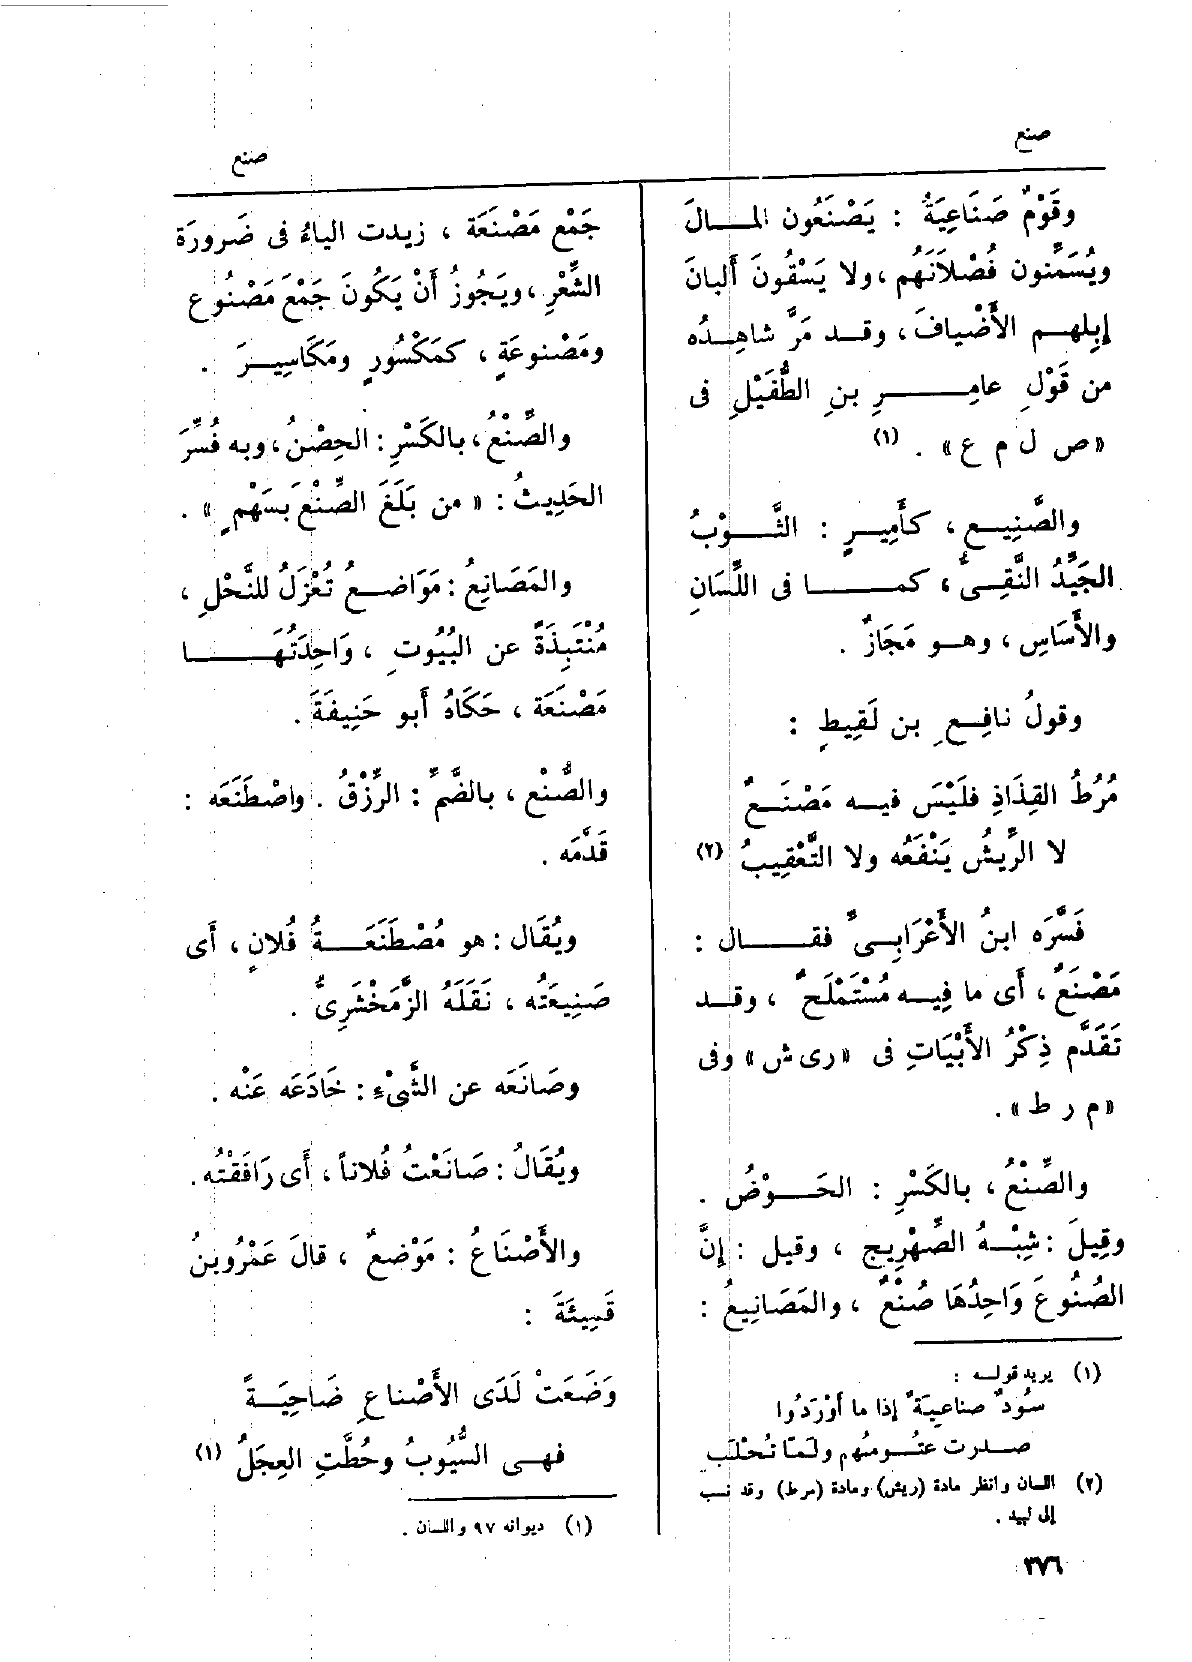 صنع
وقَوْمٌ صَنَاعِيَةٌ : يَصْنَعُون المـالَ
ويُسَمِّنون فُصْلَانَهُم ، ولا يَسْقُونَ أَلبانَ
إبِلهم الأَضْيافَ ، وقد مَرَّ شاهِدُه
من قَوْلِ عامِرِ بنِ الطُّفَيْلِ فى
«ص ل م ع» . (١)
والصَّنِيع ، كأَمِيرٍ : الثَّوْبُ
الجَيِّدُ النَّقِىُّ ، كما فى اللِّسَانِ
والأَسَاسِ ، وهو مَجَازٌ .
وقولُ نافِعِ بن لَقِيطٍ :
مُرُطُ القِذَاذِ فلَيْسَ فيه مَصْنَعٌ
لا الرِّيشُ يَنْفَعُه ولا التَّعْقِيبُ (٢)
فَسَّرَه ابنُ الأَعْرَابِىِّ فقال :
مَصْنَعٌ ، أَى ما فِيه مُسْتَمْلَحٌ ، وقد
تَقَدَّم ذِكْرُ الأَبْيَاتِ فى «رى ش» وفى
«م ر ط» .
والصِّنْعُ ، بالكَسْرِ : الحَوْضُ .
وقِيلَ : شِبْهُ الصِّهْرِيج ، وقيل : إنَّ
الصُنُوعَ وَاحِدُهَا صُنْعٌ ، والمَصَانِيعُ :
(١) يريد قوله :
سُودٌ صناعيَةٌ إذا ما أوْرَدُوا
صدرت عتُومُهم ولَمّا تُحْلَب
(٢) اللسان وانظر مادة (ريش) ومادة (مرط) وقد نسب
إلى لبيد .
٣٧٦
صنع
جَمْع مَصْنَعَة ، زيدت الياءُ فى ضَرورَة
الشِّعْرِ ، ويَجُوزُ أَنْ يَكُونَ جَمْعَ مَصْنُوع
ومَصْنوعَةٍ ، كمَكْسُورٍ ومَكَاسِيرَ .
والصِّنْعُ ، بالكَسْرِ : الحِصْنُ ، وبه فُسِّرَ
الحَدِيثُ : « من بَلَغَ الصِّنْعَ بسَهْمٍ » .
والمَصَانِعُ : مَوَاضعُ تُعْزَلُ للنَّحْلِ ،
مُنْتَبِذَةً عن البُيُوتِ ، وَاحِدَتُهَا
مَصْنَعَة ، حَكَاهُ أَبو حَنِيفَةَ .
والصُّنْع ، بالضَّمِّ : الرِّزْقُ . واصْطَنَعَه :
قَدَّمَه .
ويُقَال : هو مُصْطَنَعَةُ فُلانٍ ، أَى
صَنِيعَتُه ، نَقَلَهُ الزَّمَخْشَرِىُّ .
وصَانَعَه عن الشَّىْءِ : خَادَعَه عَنْه .
ويُقَالُ : صَانَعْتُ فُلاناً ، أَى رَافَقْتُه .
والأَصْنَاعُ : مَوْضعٌ ، قالَ عَمْرُوبنُ
قَمِيئَةَ :
وَضَعَتْ لَدَى الأَصْناعِ ضَاحِيَةً
فهى السُّيُوبُ وحُطَّتِ العِجَلُ (١)
(١) ديوانه ٩٧ واللسان .